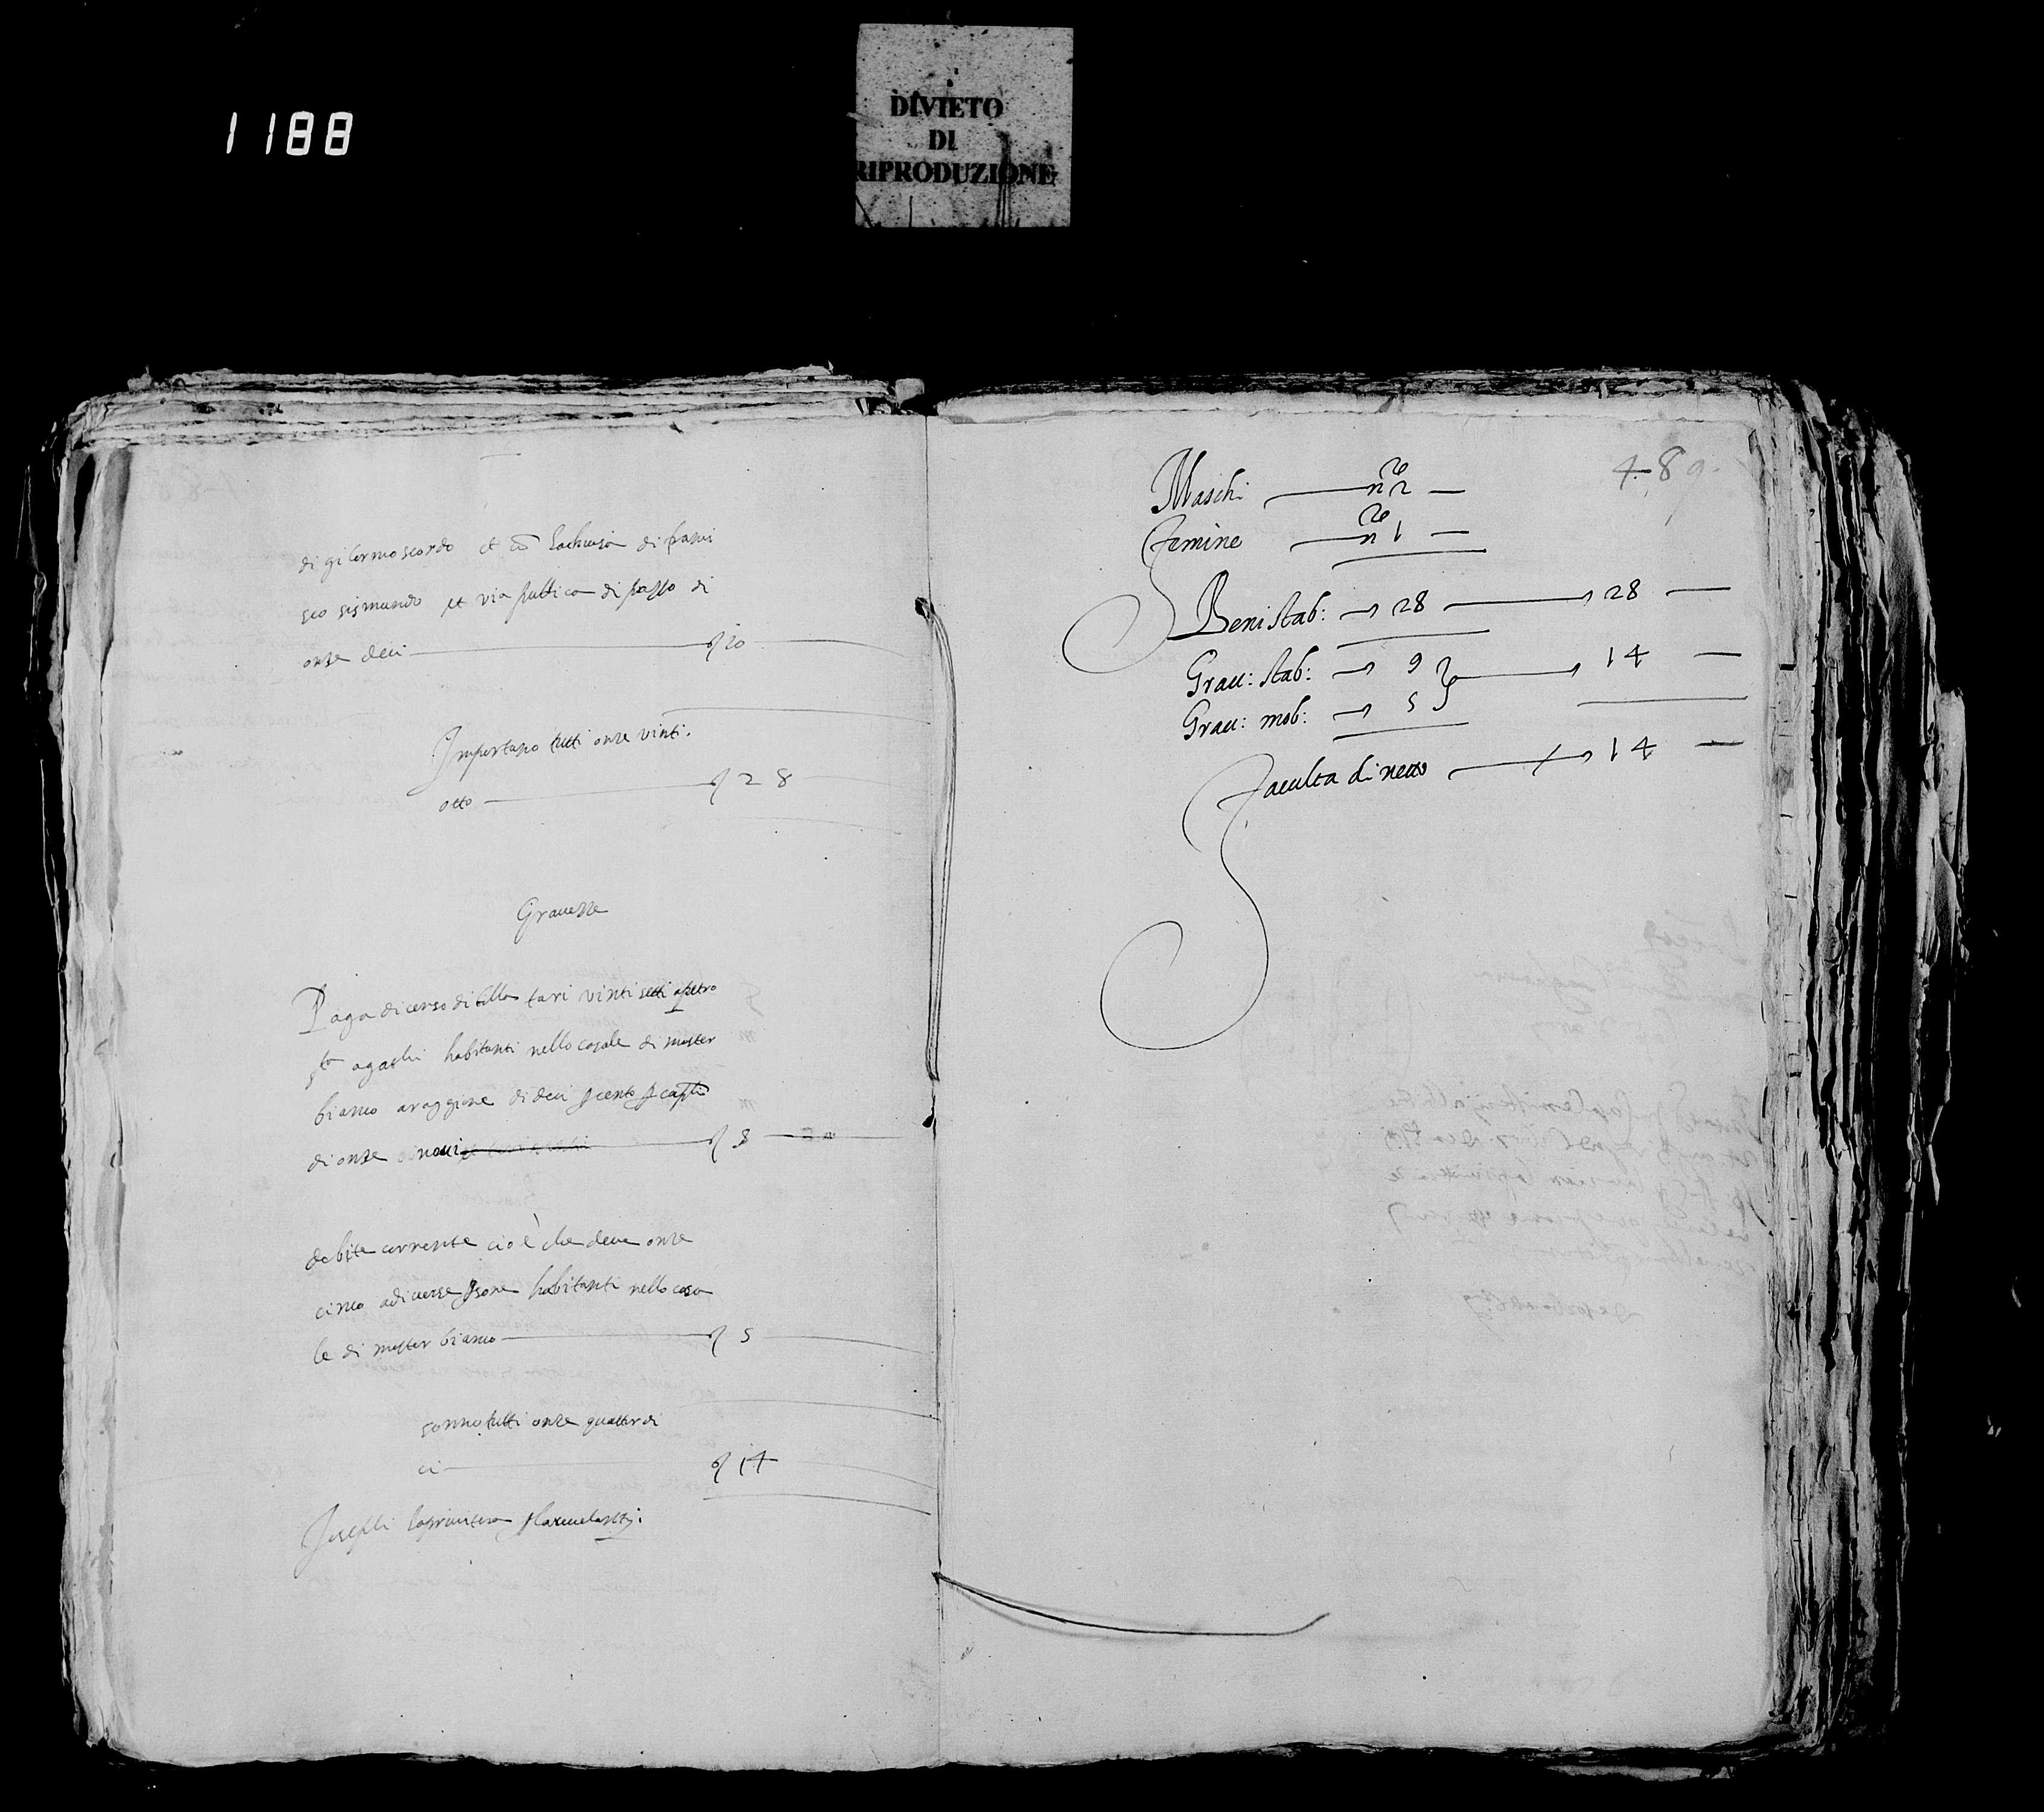 1188
DIVIETO
DI
RIPRODUZIONE
di gilermo scordo et cō la chiusa di franci
sco sigmundo et via publica di prezzo di
onze deci 10
Importano tutti onze vinti
otto 28
Gravezze
Paga di censo tari vinti setti a petro
habitanti nello casale di mister
bianco a raggione di deci per cento per capli
di onze novi 9
debite corrente cioè che deve onze
cinco a diverse psone habitanti nello casa
le di mister bianco 5
sonno tutti onze quattordi
ci 14
489.
Maschi nro 2
Femine nro 1
Beni stab: 28 28
Grau: stab: 9 14
Grau: mob: 5
Faculta di netto 14